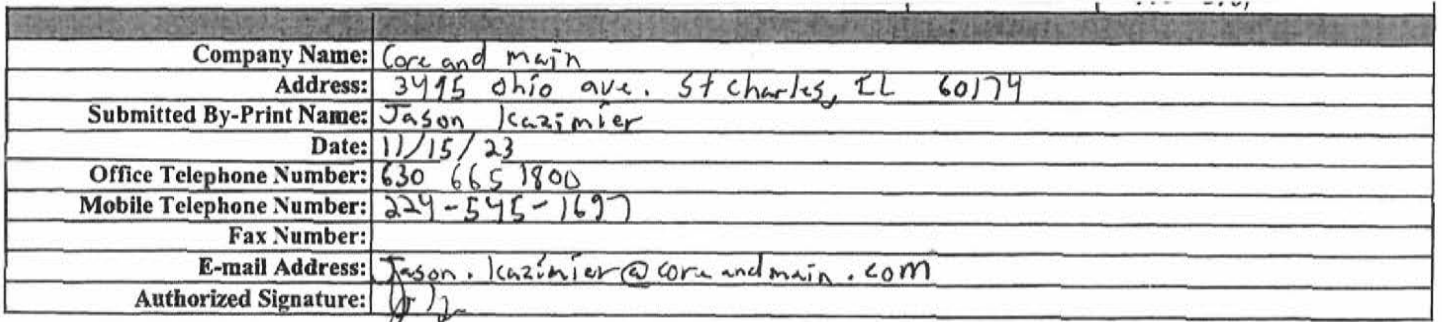 Company Name: Core and main
Address: 3495 Ohio ave. St Charles, IL 60174
Submitted By-Print Name: Jason Kazimier
Date: 11/15/23
Office Telephone Number: 630 665 1800
Mobile Telephone Number: 224-545-1697
Fax Number:
E-mail Address: Jason.kazimier@coreandmain.com
Authorized Signature: